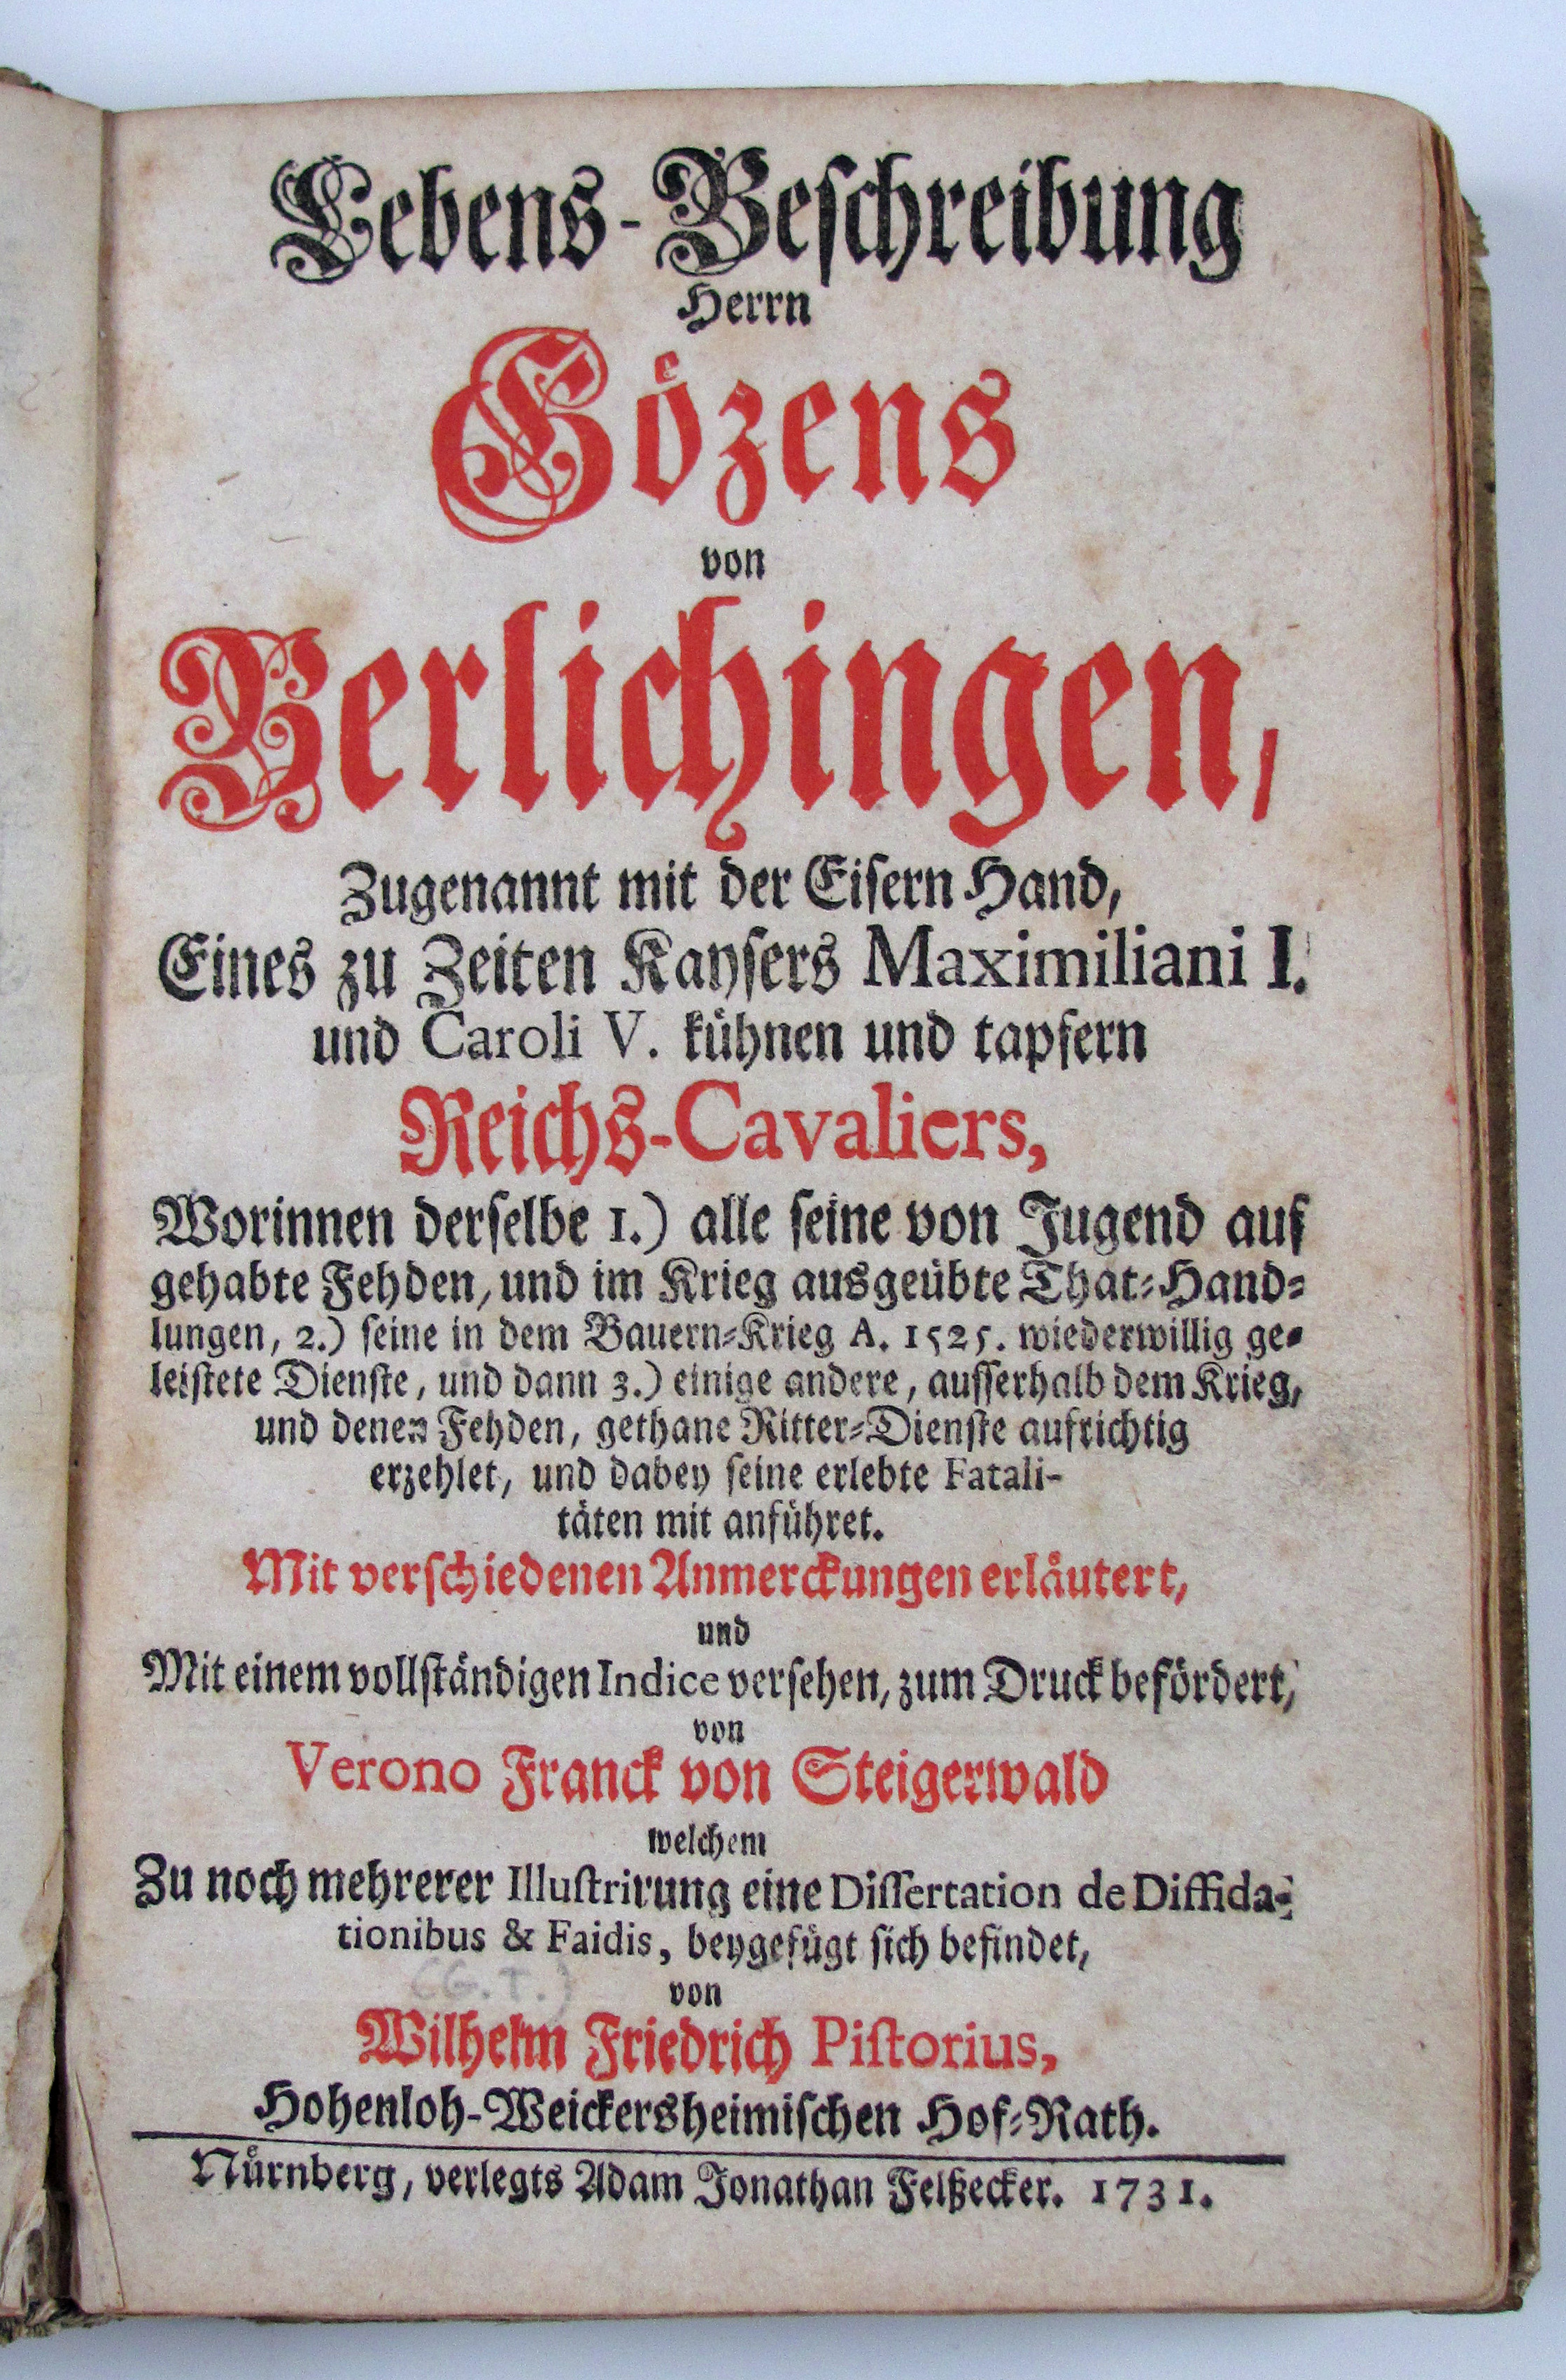 Lebens-Beschreibung
Herrn
Gözens
von
Berlichingen,
Zugenannt mit der Eisern Hand,
Eines zu Zeiten Kaysers Maximiliani I.
und Caroli V. kühnen und tapfern
Reichs-Cavaliers,
Worinnen derselbe 1.) alle seine von Jugend auf
gehabte Fehden, und im Krieg ausgeübte That-Hand-
lungen, 2.) seine in dem Bauern-Krieg A. 1525. wiederwillig ge-
leistete Dienste, und dann 3.) einige andere, ausserhalb dem Krieg,
und denen Fehden, gethane Ritter-Dienste aufrichtig
erzehlet, und dabey seine erlebte Fatali-
täten mit anführet.
Mit verschiedenen Anmerckungen erläutert,
und
Mit einem vollständigen Indice versehen, zum Druck befördert,
von
Verono Franck von Steigerwald
welchem
Zu noch mehrerer Illustrirung eine Dissertation de Diffida-
tionibus & Faidis, beygefügt sich befindet,
(G.T.)
von
Wilhelm Friedrich Pistorius,
Hohenloh-Weickersheimischen Hof-Rath.
Nürnberg, verlegts Adam Jonathan Felßecker. 1731.